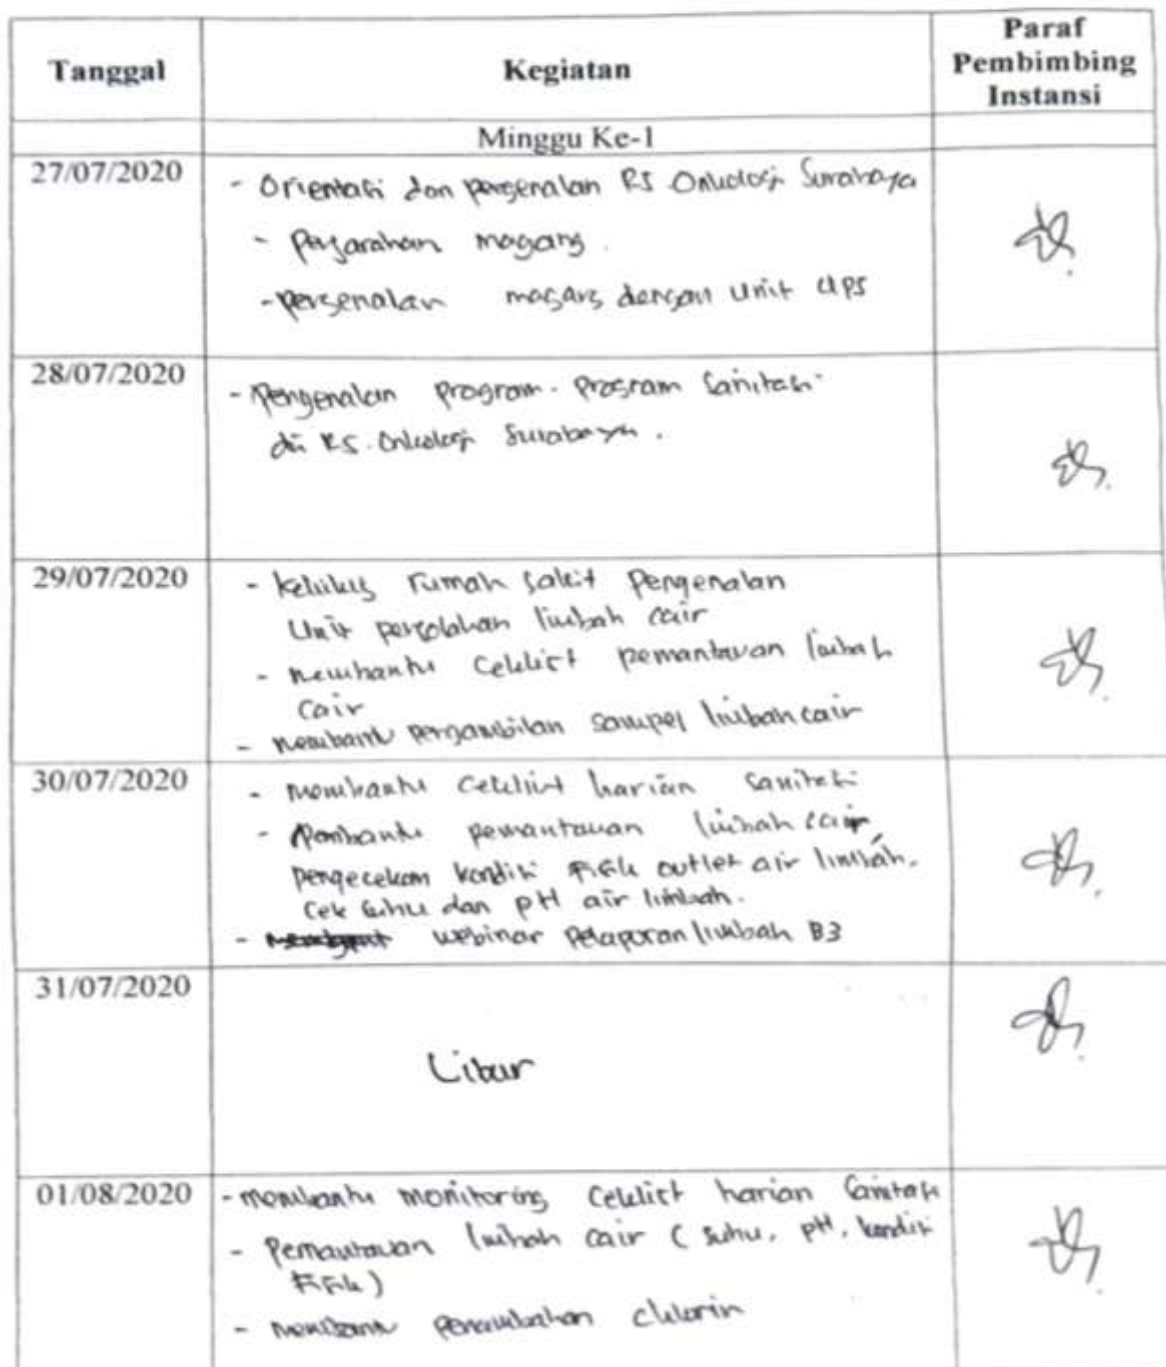 Tanggal
Kegiatan
Paraf
Pembimbing
Instansi
Minggu Ke-1
27/07/2020
- Orientasi dan pengenalan RS Onkologi Surabaya
- Pengarahan magang.
- pengenalan magang dengan Unit UPS
28/07/2020
- Pengenalan program-program Sanitasi
di RS. Onkologi Surabaya.
29/07/2020
- keliling rumah sakit Pengenalan
Unit pengolahan limbah cair
- Membantu Ceklist pemantauan limbah
cair
- membantu pengambilan sampel limbah cair
30/07/2020
- membantu ceklist harian sanitasi
- Membantu pemantauan limbah cair
pengecekan kondisi fisik outlet air limbah.
cek suhu dan pH air limbah.
- webinar Pelaporan limbah B3
31/07/2020
Libur
01/08/2020
- membantu monitoring ceklist harian Sanitasi
- Pemantauan limbah cair (suhu, pH, kondisi
Fisik)
- membantu penambahan chlorin